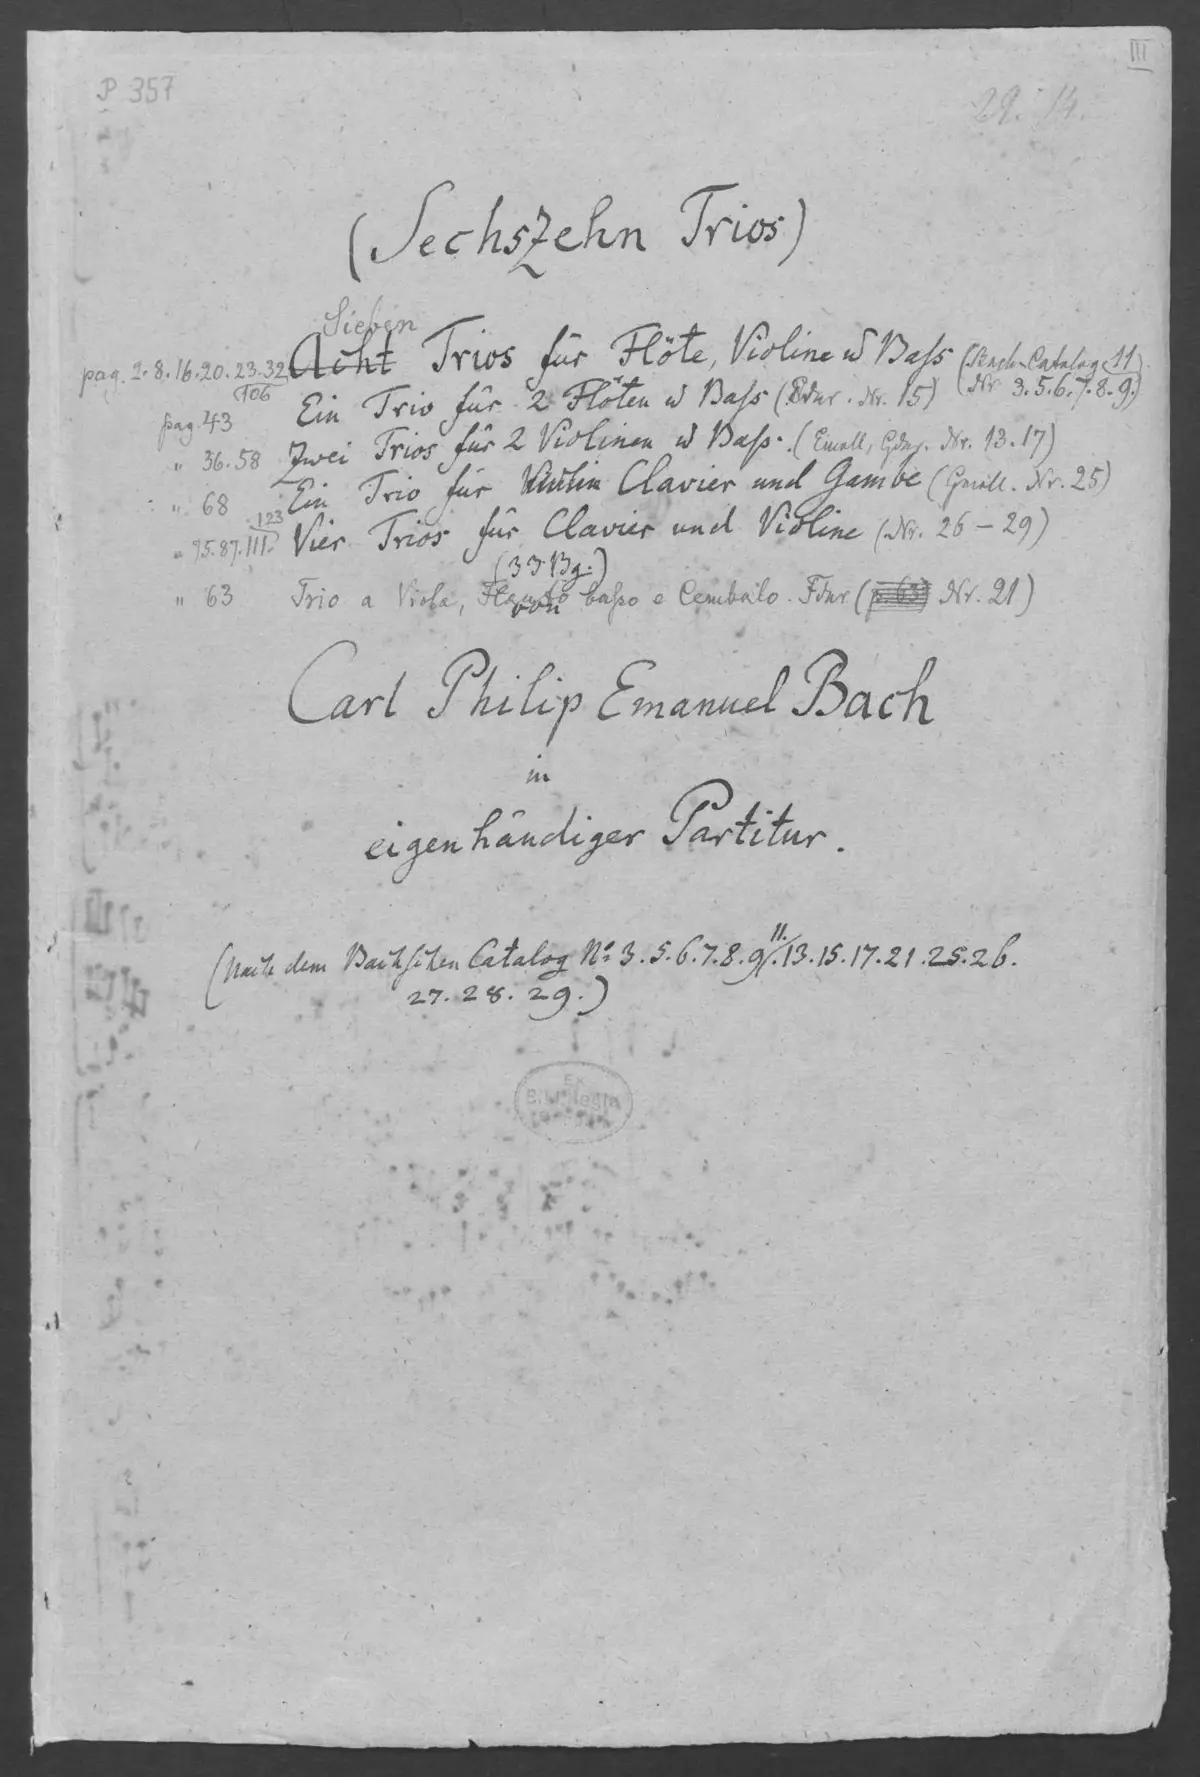 III
P 357
29. 14.
(Sechszehn Trios)
Sieben
pag. 2. 8. 16. 20. 23. 32 Acht Trios für Flöte, Violine u Baſs (Bach. Catalog 11
106 Ein Trio für 2 Flöten u Baſs (Edur. Nr. 15) Nr 3. 5. 6. 7. 8. 9.)
pag. 43
„ 36. 58 Zwei Trios für 2 Violinen u Baſs. (Emoll, Gdur. Nr. 13. 17)
„ 68 Ein Trio für Violin Clavier und Gambe (Gmoll. Nr. 25)
123
„ 75. 87. 111. Vier Trios für Clavier und Violine (Nr. 26 – 29)
(33 Bg.)
„ 63 Trio a Viola, Flauto baſso e Cembalo. Fdur (p. 63) Nr. 21)
von
Carl Philip Emanuel Bach
in
eigenhändiger Partitur.
(Nach dem Bachſchen Catalog No 3. 5. 6. 7. 8. 9. 11. 13. 15. 17. 21. 25. 26.
27. 28. 29.)
Ex